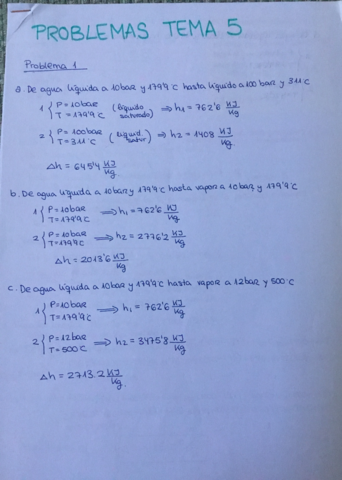 PROBLEMAS TEMA 5
Problema 1
a. De agua líquida a 10bar y 179'9°C hasta líquido a 100 bar y 311°C
1 { P = 10bar T = 179'9°C (líquido saturado) ⟹ h₁ = 762'6 KJ/Kg
2 { P = 100bar T = 311°C ⟹ h₂ = 1408 KJ/Kg
Δh = 645'4 KJ/Kg
b. De agua líquida a 10bar y 179'9°C hasta vapor a 10bar y 179'9°C
1 { P = 10bar T = 179'9°C ⟹ h₁ = 762'6 KJ/Kg
2 { P = 10bar T = 179'9°C ⟹ h₂ = 2776'2 KJ/Kg
Δh = 2013'6 KJ/Kg
c. De agua líquida a 10bar y 179'9°C hasta vapor a 12bar y 500°C
1 { P = 10bar T = 179'9°C ⟹ h₁ = 762'6 KJ/Kg
2 { P = 12bar T = 500°C ⟹ h₂ = 3475'8 KJ/Kg
Δh = 2713.2 KJ/Kg